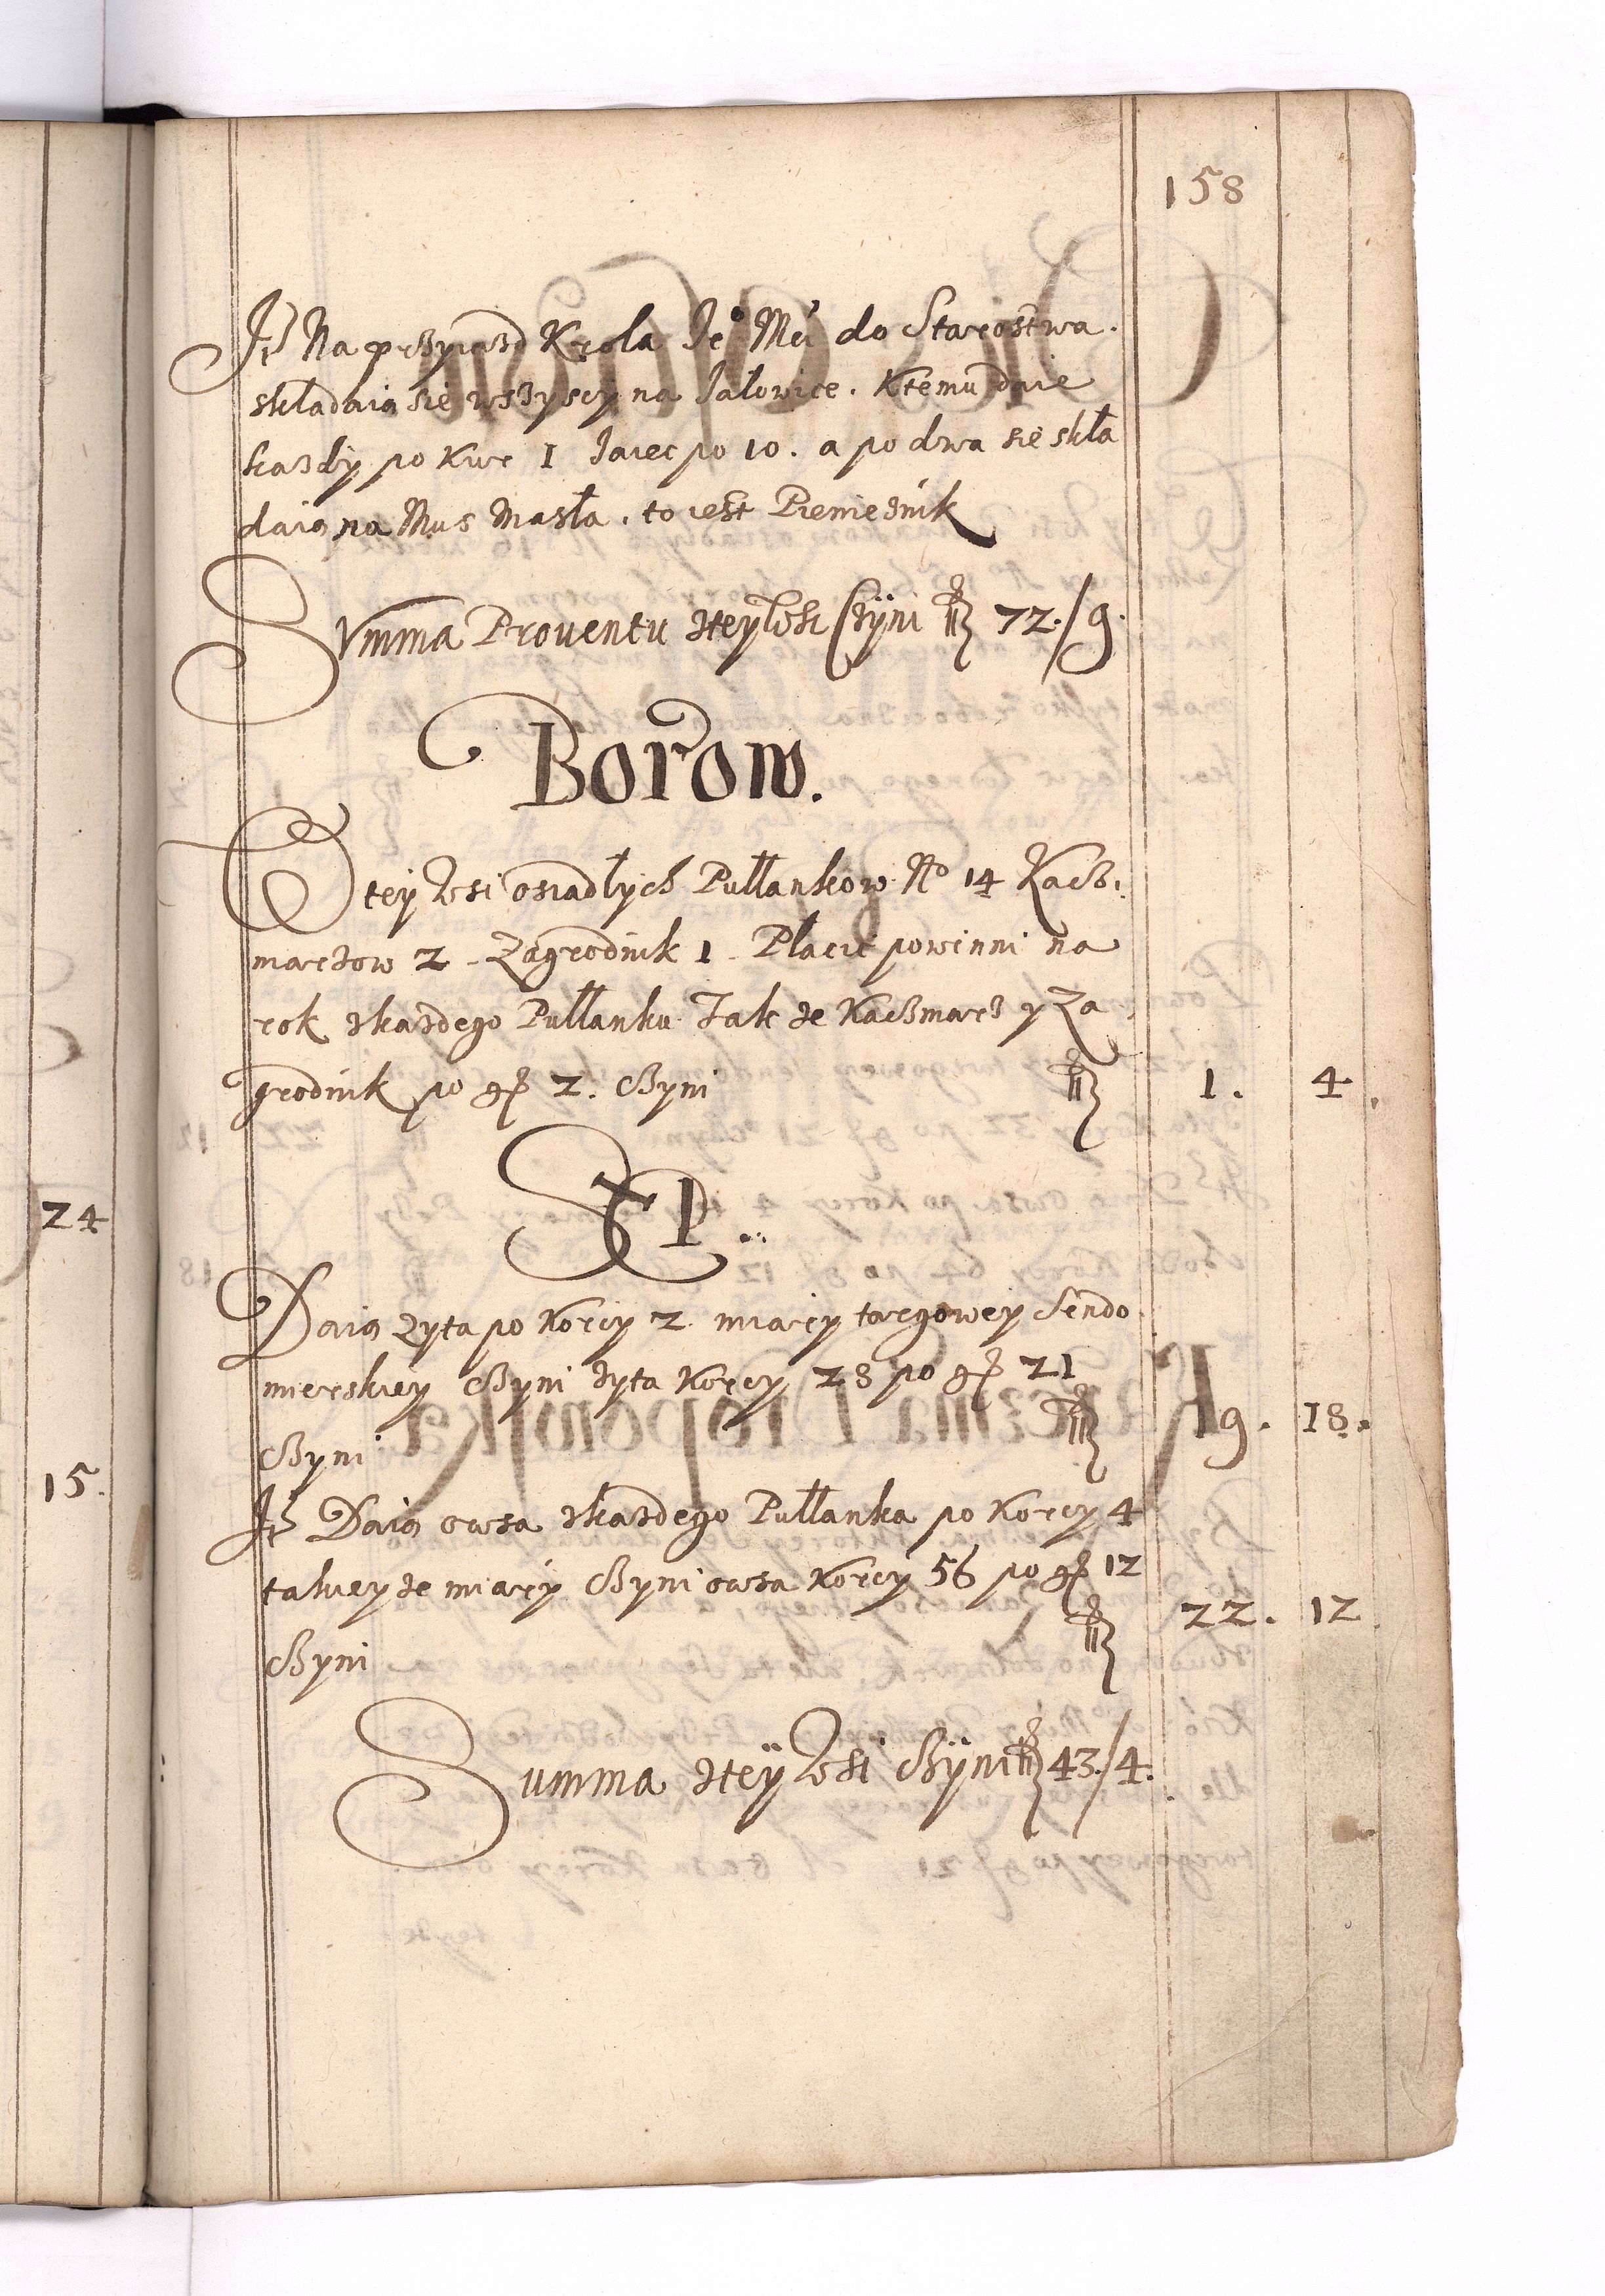 158
It Na przyiazd Krola Je° Mći do Starostwa.
składaią się wszyscy na Jałowice. Ktemu daie
kazdy po Kur 1 Jaiec po 10. a po dwa się skła
daią na Mus Masła. to iest Pienieznik
Summa Prouentu zteyWsi Czÿni fl 72./9.
Borow.
Wtey Wsi osiadłych Pułłankow N° 14 Kacz
marzow 2 - Zagrodnik 1 - Płacić powinni na
rok zkazdego Pułłanku Tak ze Kaczmarz y Za
grodnik po gr 2. Czyni fl 1. 4
SEP...
Daią Zyta po Korcy 2 miary targowey Sendo
mierskiey Czyni zyta Korcy 28 po gr 21
Czyni fl 19. 18.
It Daią owsa zkazdego Pułłanka po Korcy 4
takiey ze miary Czyni owsa Korcy 56 po gr 12
Czyni fl 22. 12
Summa zteÿ Wsi Czÿni fl 43./4.
24
15.